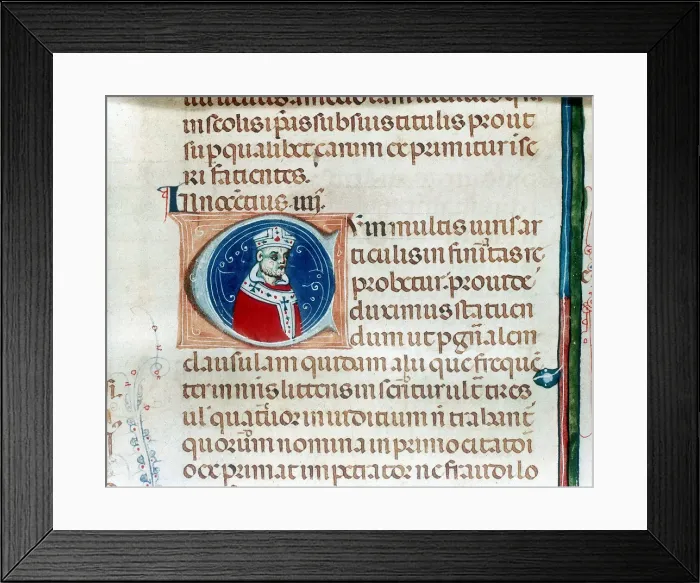 in scolis ip̄as sub suis titulis prout
sup qualibet earum exprimitur ise
ri facientes.
Innocētius .iiij.
Cum in multis iuris ar
ticulis infinitas re
probetur. prouide
duximus statuen
dum ut p gñalem
clausulam quidam alii que frequē
ter in nr̄is litteris inscribitur ult̄ tres
ul' quatuor in iuditium n̄ trahant̄
quorum nomina in primo citatoi
o exprimat impetrator ne fraudi lo